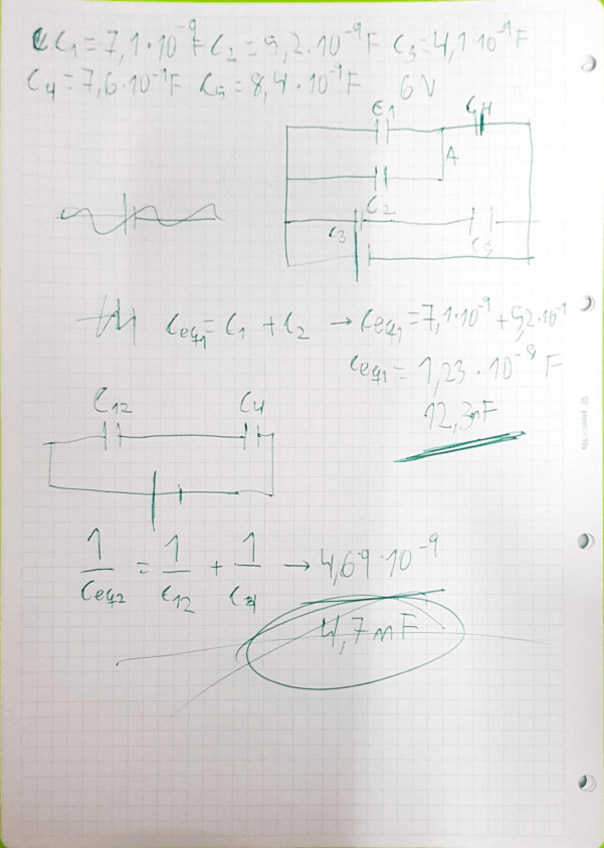 C₁ = 7,1·10⁻⁹F C₂ = 5,2·10⁻⁹F C₃ = 4,1·10⁻⁹F
C₄ = 7,6·10⁻⁹F C₅ = 8,4·10⁻⁹F 6V
C1 C4
A
C2
C3 C5
Ceq₁ = C₁ + C₂ → Ceq₁ = 7,1·10⁻⁹ + 5,2·10⁻⁹
Ceq₁ = 1,23·10⁻⁸ F
12,3nF
C₁₂ C₄
1/Ceq₂ = 1/C₁₂ + 1/C₄ → 4,69·10⁻⁹
4,7nF